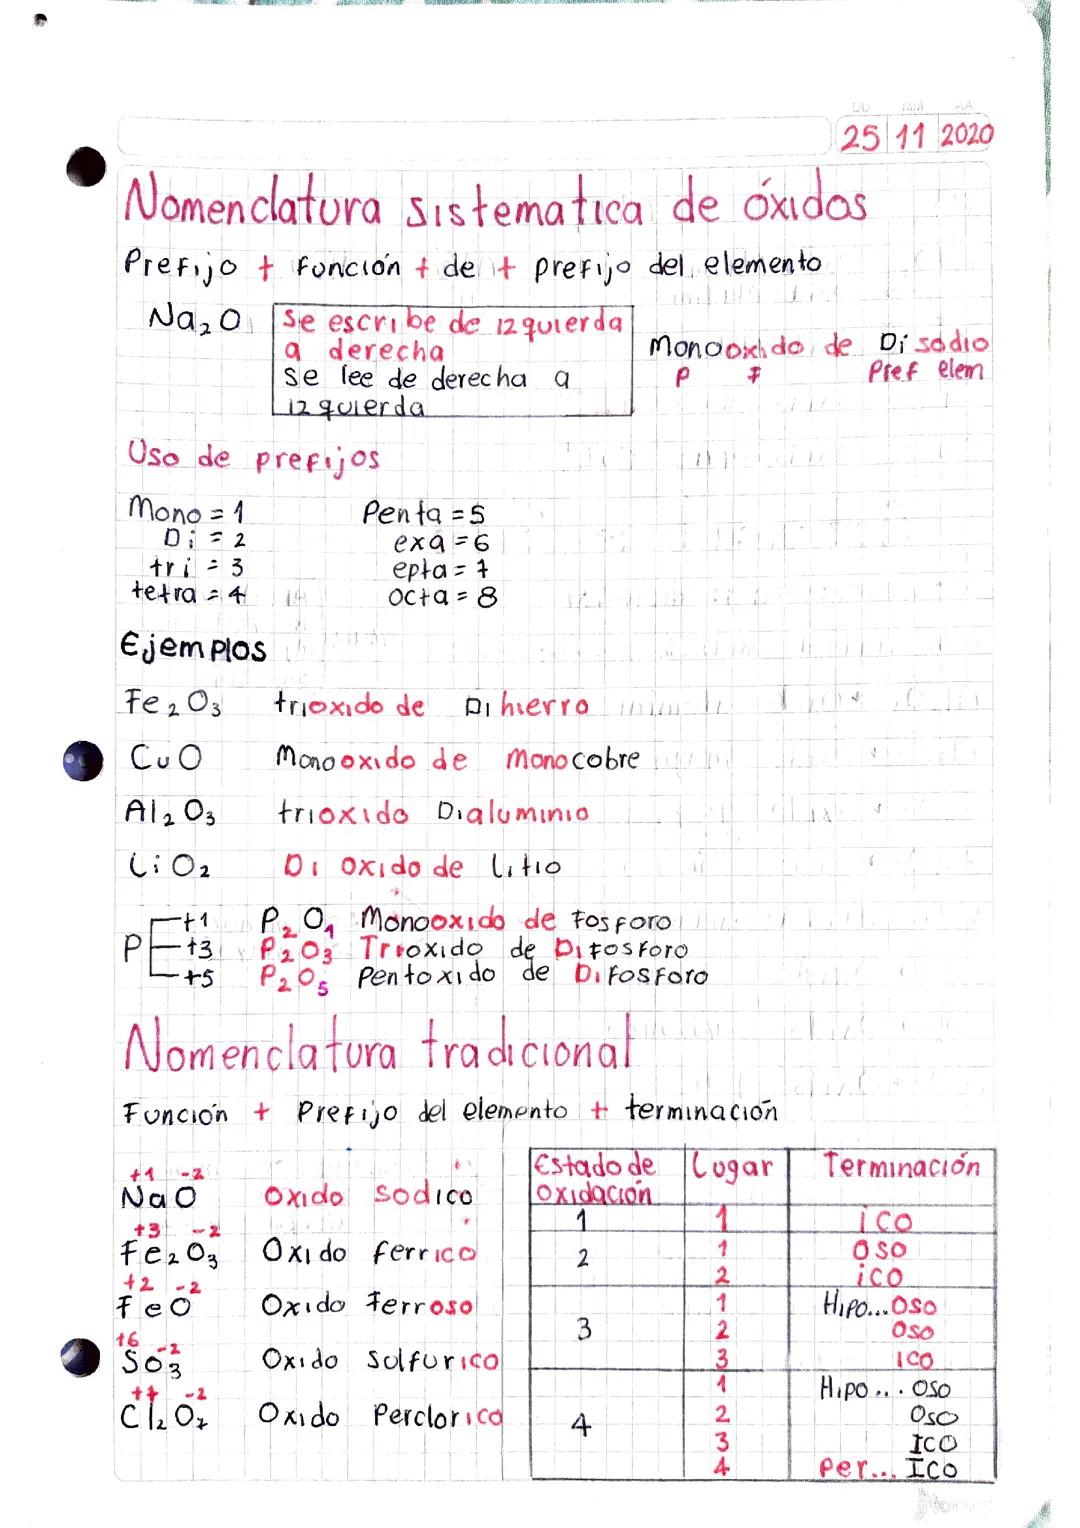 DD MM AA
25 11 2020
Nomenclatura sistematica de óxidos
Prefijo + función + de + prefijo del elemento
Na₂O
se escribe de izquierda
a derecha
se lee de derecha a
izquierda
Monooxido de Disodio
P F Pref elem
Uso de prefijos
Mono = 1 Penta = 5
Di = 2 exa = 6
tri = 3 epta = 7
tetra = 4 octa = 8
Ejemplos
Fe₂O₃ trioxido de Di hierro
CuO Monooxido de monocobre
Al₂O₃ trioxido Dialuminio
LiO₂ Di oxido de litio
P +1 P₂O₁ Monooxido de fosforo
+3 P₂O₃ Trioxido de Difosforo
+5 P₂O₅ Pentoxido de Difosforo
Nomenclatura tradicional
Función + Prefijo del elemento + terminación
+1 -2
NaO Oxido sodico
+3 -2
Fe₂O₃ Oxido ferrico
+2 -2
FeO Oxido ferroso
+6 -2
SO₃ Oxido sulfurico
+7 -2
Cl₂O₇ Oxido Perclorico
Estado de Lugar Terminación
oxidación
1 1 ico
2 1 oso
2 ico
3 1 Hipo...oso
2 oso
3 ico
4 1 Hipo... oso
2 oso
3 Ico
4 per... Ico
Norma